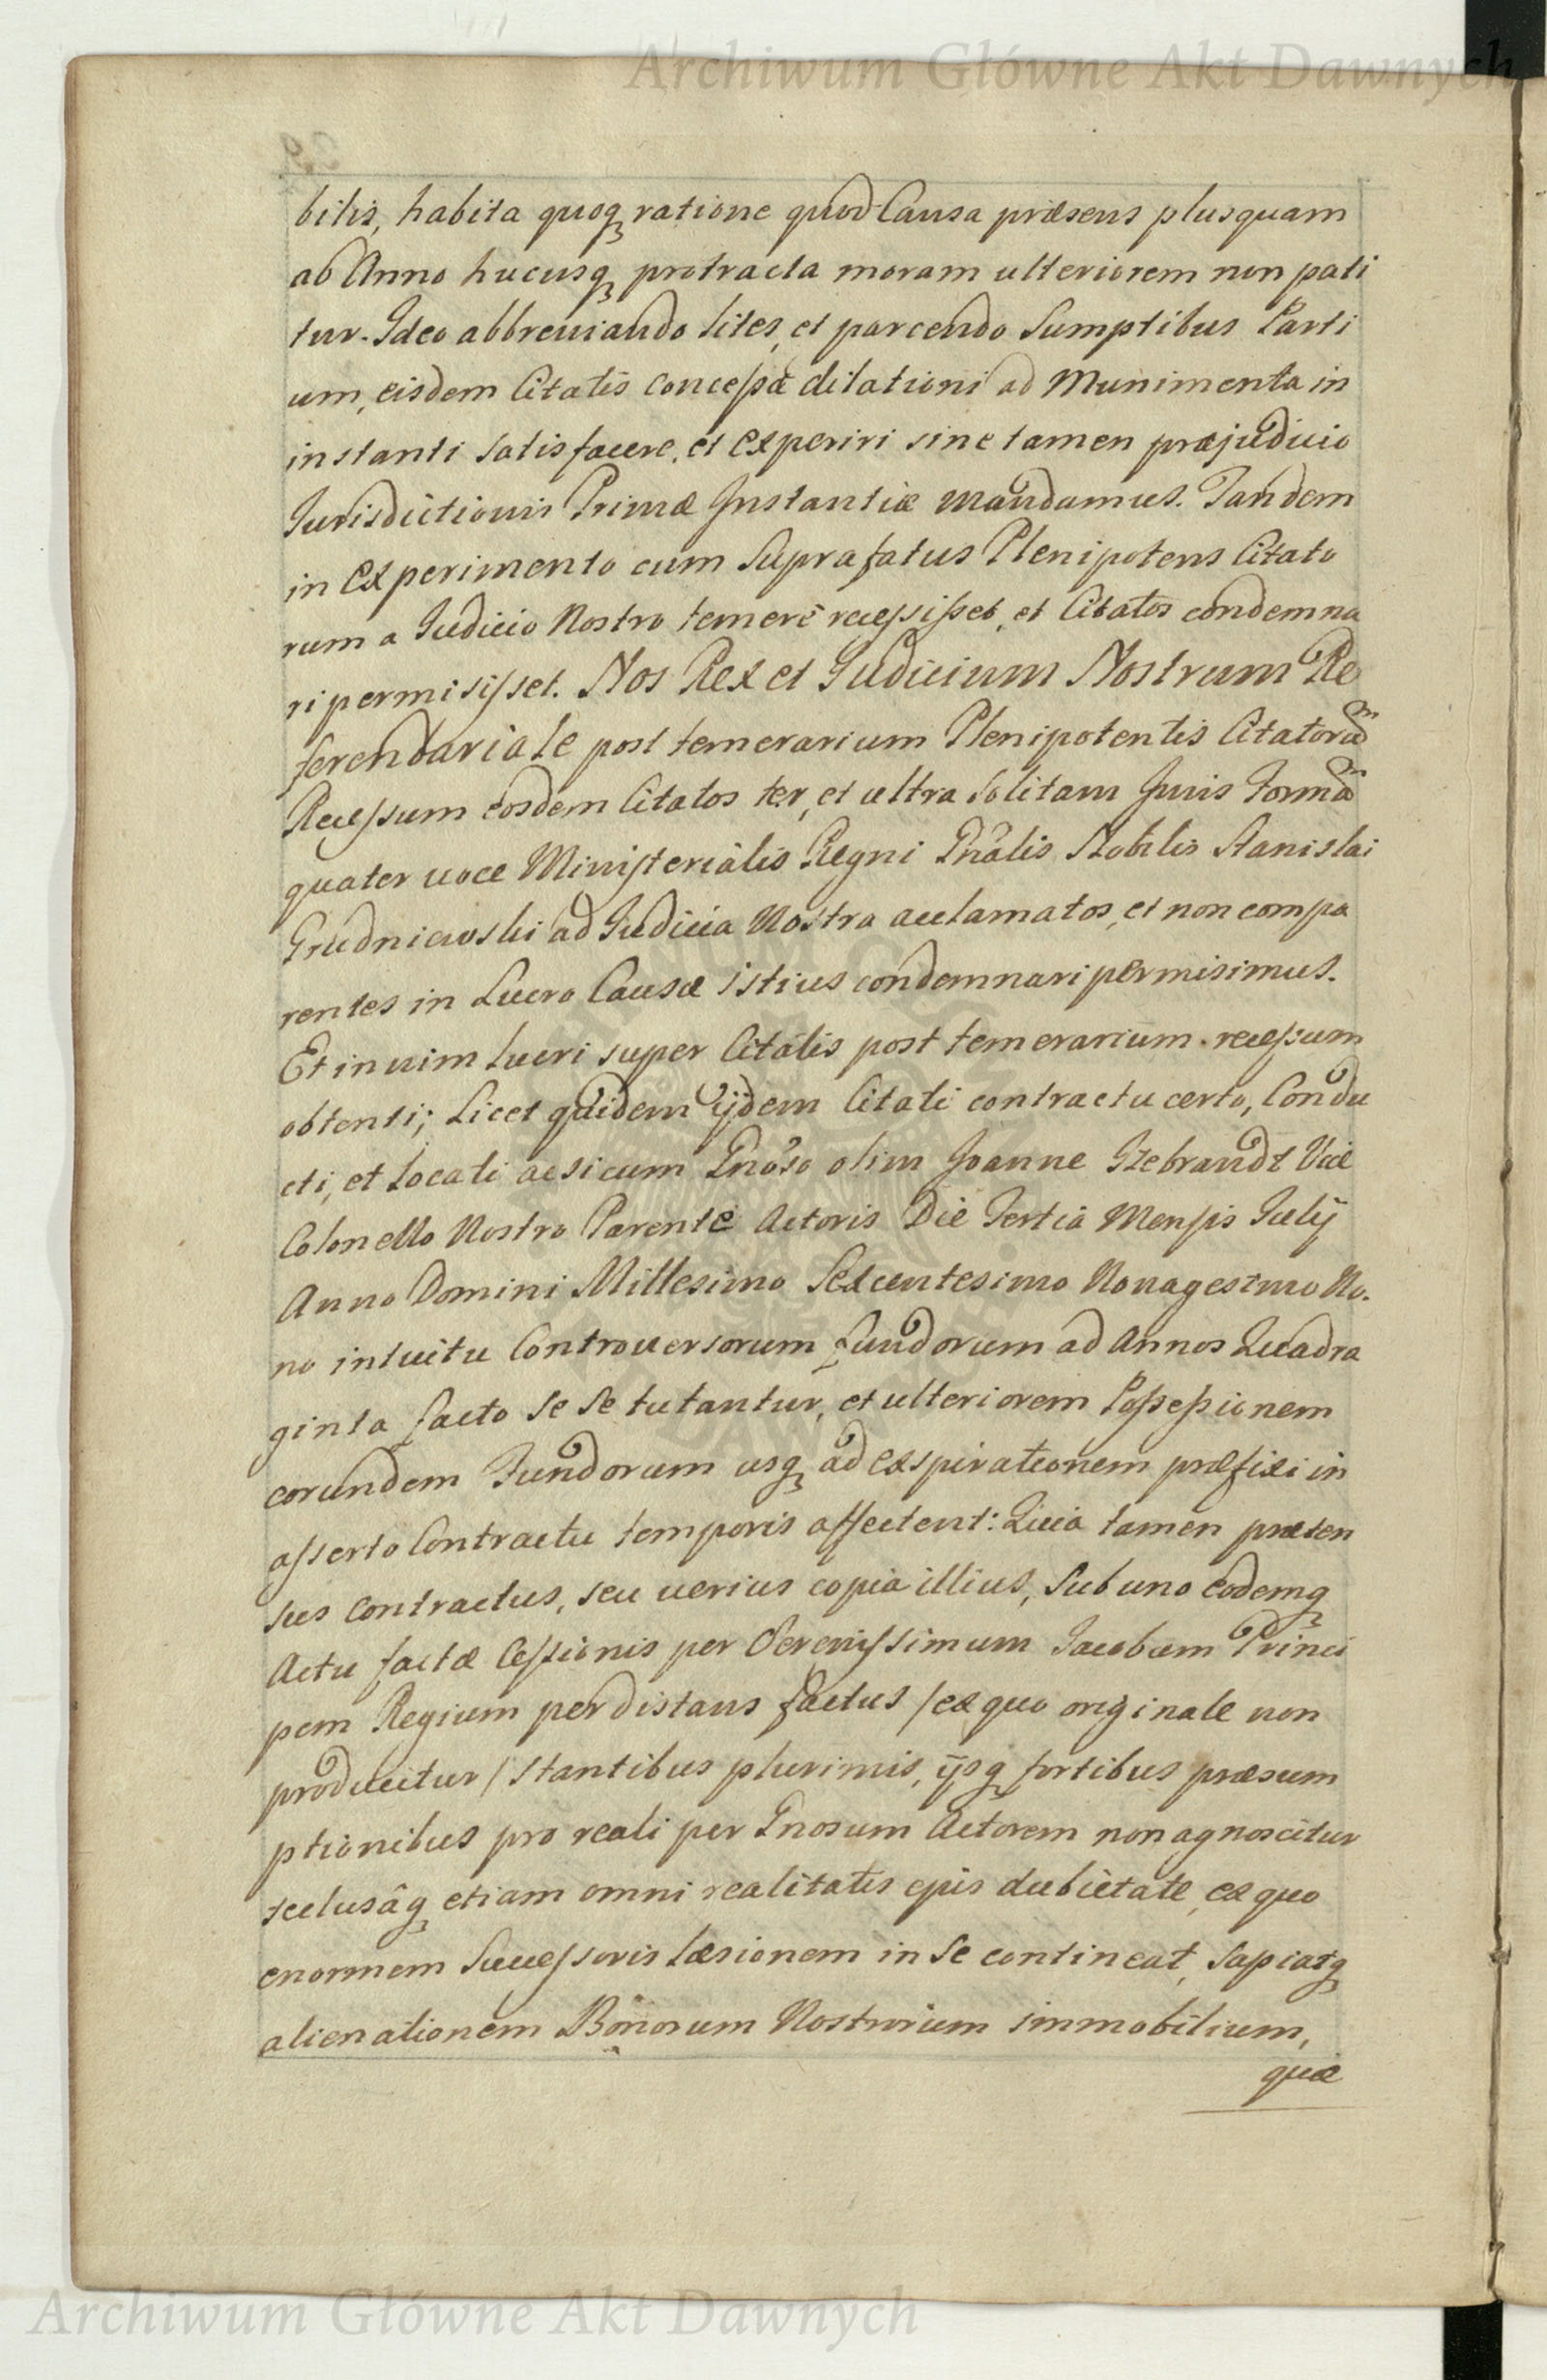 Archiwum Główne Akt Dawnych
bilis, habita quoq ratione quod Causa præsens plusquam
ab Anno hucusq protracta moram ulteriorem non pati
tur. Ideo abbreuiando lites, et parcendo Sumptibus Parti
um, eisdem Citatis concessæ dilationi ad Munimenta in
instanti satisfacere, et experiri sine tamen præjudicio
Jurisdictionis Primæ Instantiæ mandamus. Tandem
in experimento cum Suprafatus Plenipotens Citato
rum a Judicio Nostro temerè recessisset, et Citatos condemna
ri permisisset. Nos Rex et Judicium Nostrum Re
ferendariale post temerarium Plenipotentis Citatorum
Recessum eosdem Citatos ter, et ultra solitam Juris Formam
quater uoce Ministerialis Regni Gnalis Nobilis Stanislai
Grudniewski ad Judicia Nostra acclamatos, et non compa
rentes in Lucro Causæ istius condemnari permisimus.
Et in uim lucri super Citatis post temerarium recessum
obtenti; Licet quidem ijdem Citati contractu certo, Condu
cti, et Locati ac si cum Gnoso olim Joanne Szebrandt Vice
Colonello Nostro Parente Actoris Die Tertia Mensis Julij
Anno Domini Millesimo Sexcentesimo Nonagesimo No.
no intuitu Controuersorum fundorum ad Annos Quadra
ginta facto se se tutantur, et ulteriorem Possessionem
eorundem Fundorum usq ad exspirationem præfixi in
asserto Contractu temporis affectent: Quia tamen præten
sus Contractus, seu uerius copia illius, Sub uno eodemq
Actu factæ Cessionis per Serenissimum Jacobum Princi
pem Regium per distans factus / ex quo originale non
producitur / stantibus plurimis, ijsq fortibus præsum
ptionibus pro reali per Gnosum Actorem non agnoscitur
seclusâq etiam omni realitatis ejus dubietate, ex quo
enormem Successoris læsionem in se contineat, Sapiatq
alienationem Bonorum Nostrorum immobilium,
quæ
Archiwum Główne Akt Dawnych